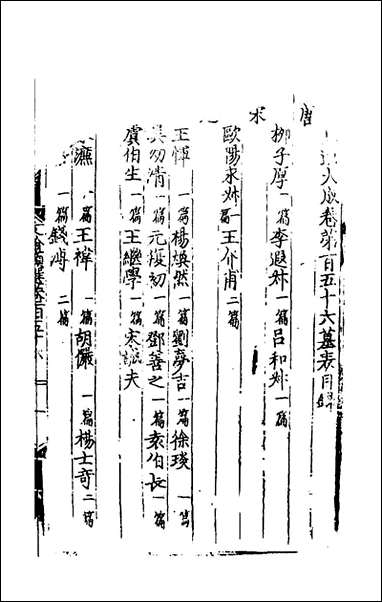 大成卷第一百五十六墓表目錄
唐
柳子厚一篇 李遐叔一篇 呂和叔一篇
宋
歐陽永叔一篇 王介甫二篇
元
王惲一篇 楊煥然一篇 劉夢吉一篇 徐琰一篇
吳幼清一篇 元復初一篇 鄧善之一篇 袁伯長一篇
虞伯生一篇 王繼學一篇 宋誠夫
一篇 王褘一篇 胡儼一篇 楊士奇二篇
一篇 錢溥二篇